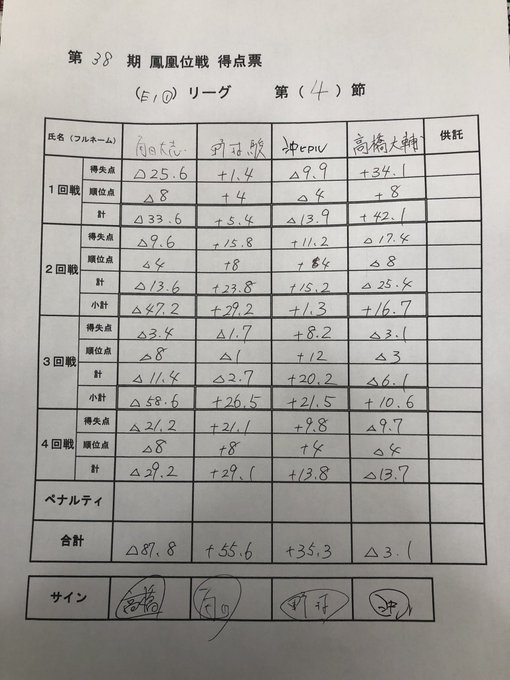 第 38 期 鳳凰位戦 得点票
(E1①) リーグ 第 (4) 節
氏名 (フルネーム) 野村駿 沖ヒロし 高橋大輔 供託
1回戦 得失点 △25.6 +1.4 △9.9 +34.1
順位点 △8 +4 △4 +8
計 △33.6 +5.4 △13.9 +42.1
2回戦 得失点 △9.6 +15.8 +11.2 △17.4
順位点 △4 +8 +4 △8
計 △13.6 +23.8 +15.2 △25.4
小計 △47.2 +29.2 +1.3 +16.7
3回戦 得失点 △3.4 △1.7 +8.2 △3.1
順位点 △8 △1 +12 △3
計 △11.4 △2.7 +20.2 △6.1
小計 △58.6 +26.5 +21.5 +10.6
4回戦 得失点 △21.2 +21.1 +9.8 △9.7
順位点 △8 +8 +4 △4
計 △29.2 +29.1 +13.8 △13.7
ペナルティ
合計 △87.8 +55.6 +35.3 △3.1
サイン 高橋 野村 沖